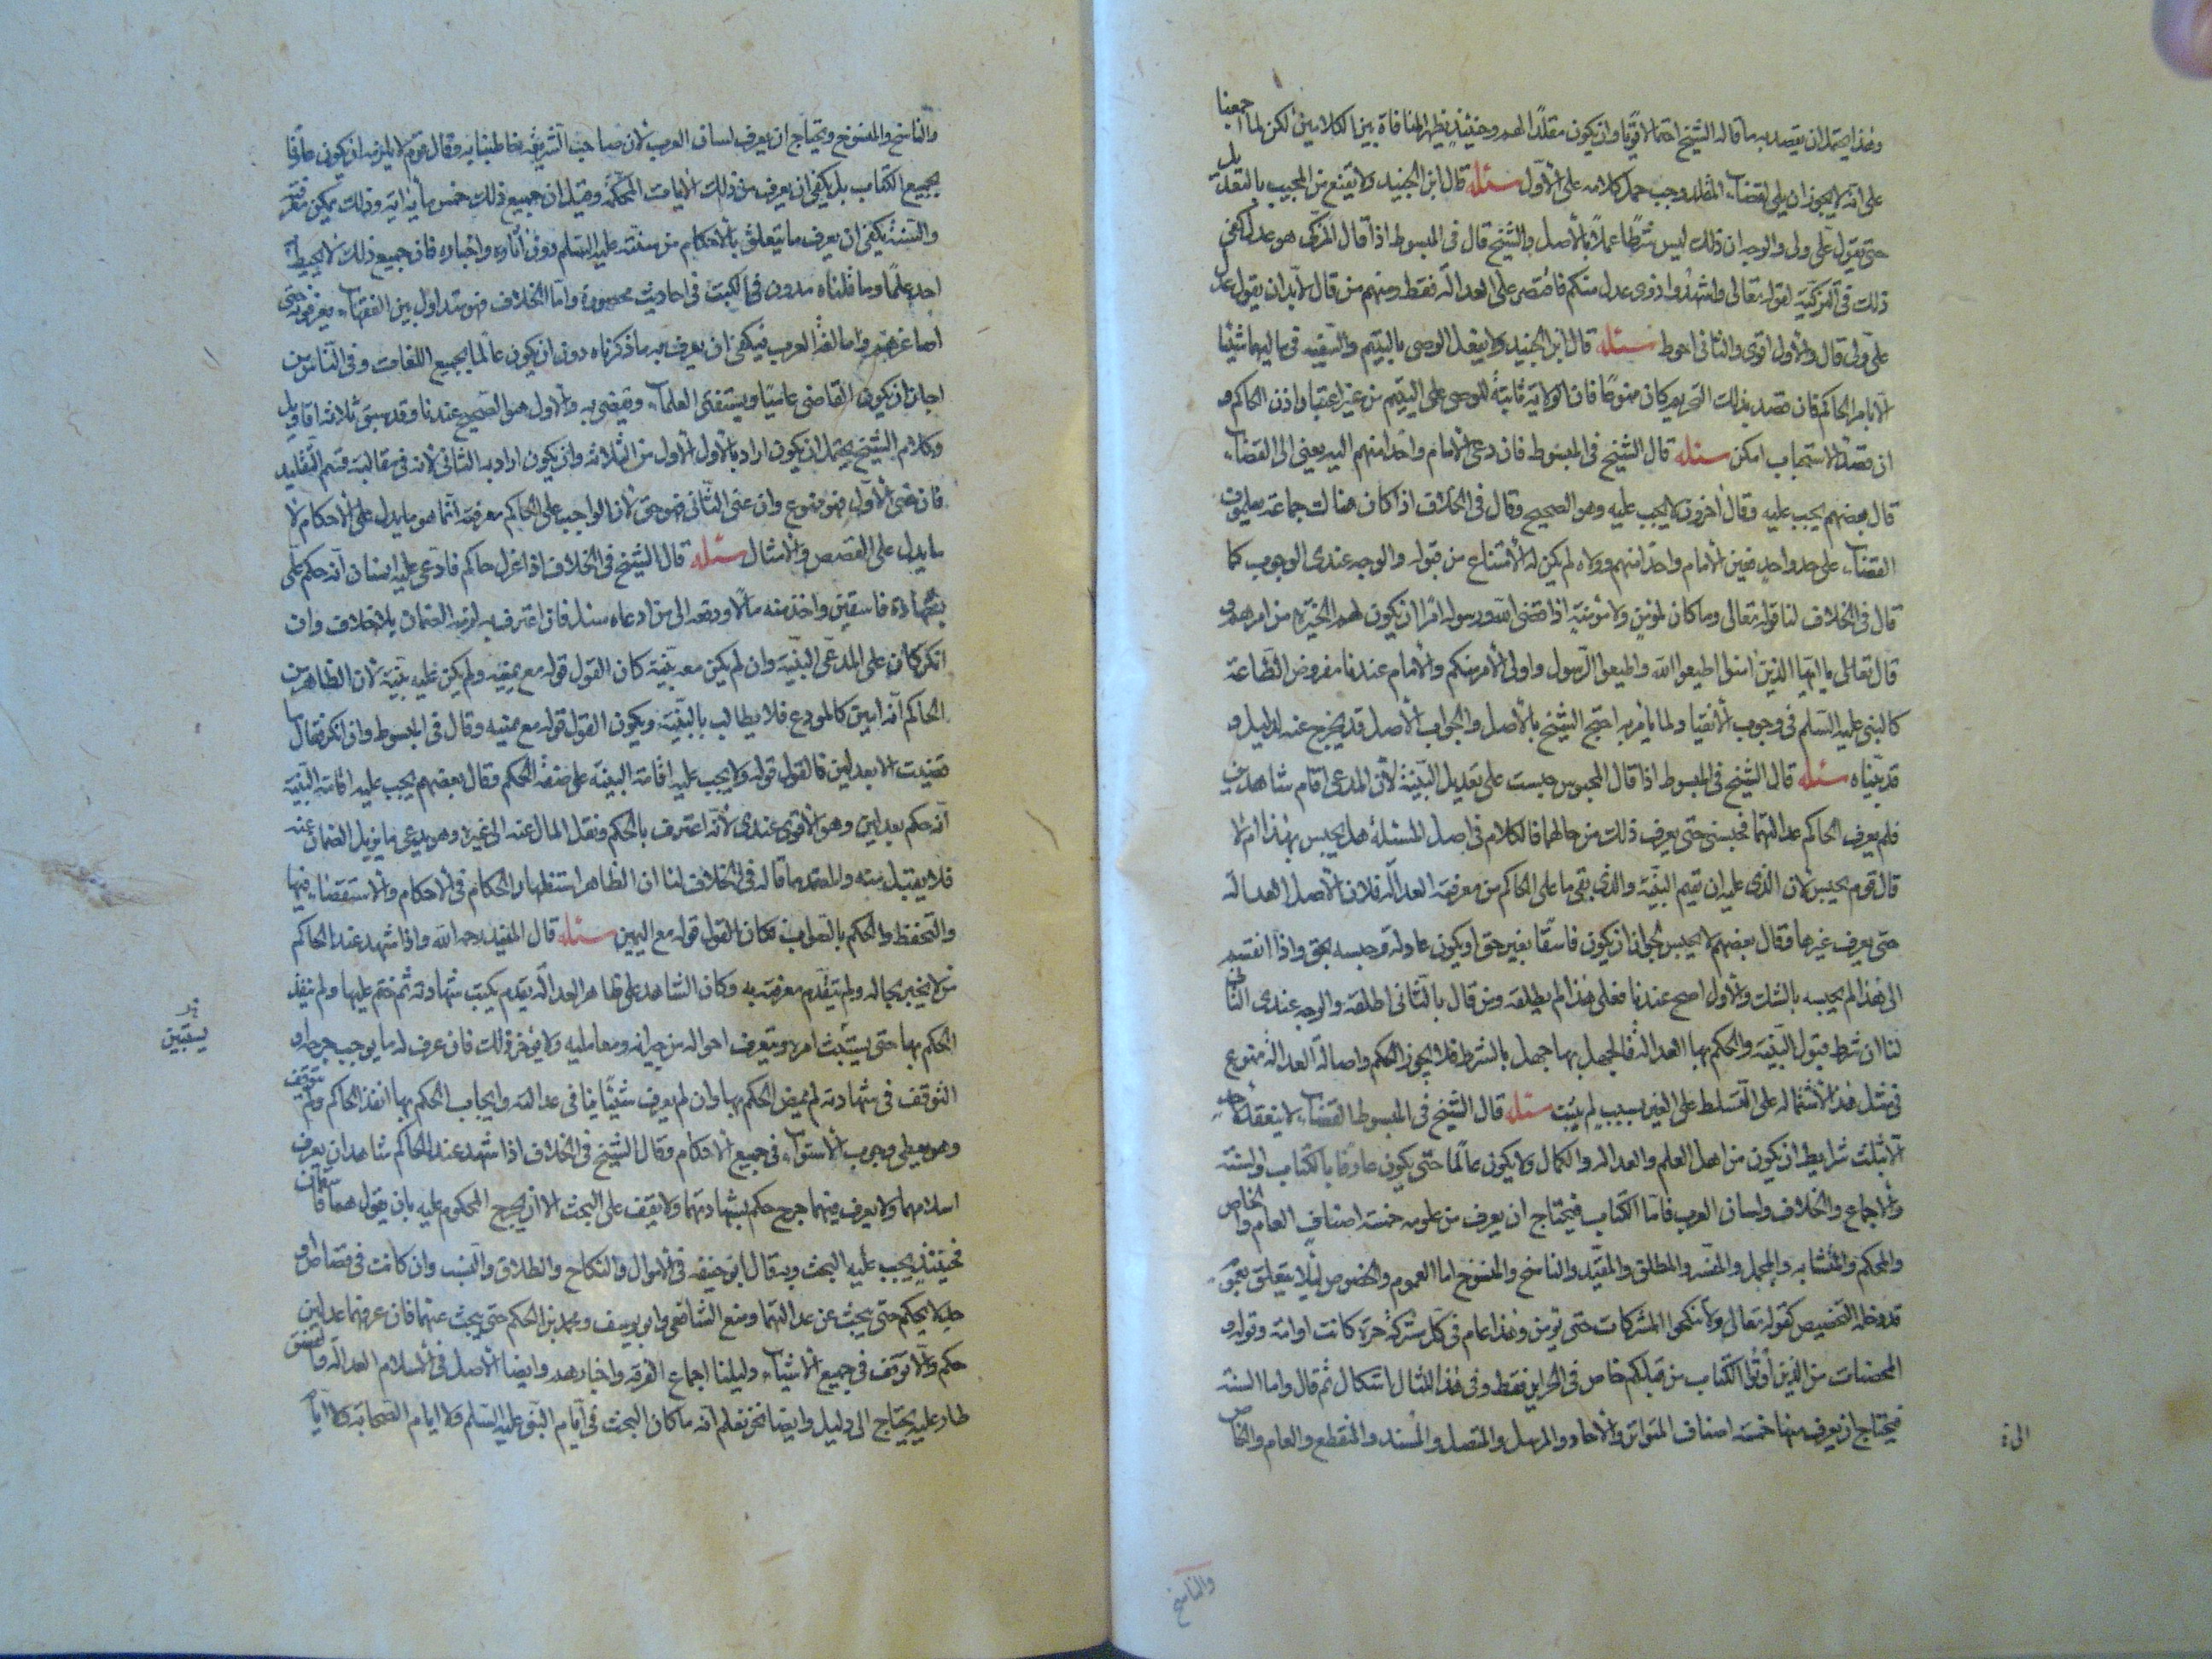 وهذا يحتمل ان يقصد به ما قاله الشيخ احتمالا قويا وان يكون مقلدا لهم وحينئذ يظهر المنافاة بين الكلامين لكن لما اجمعنا
على انه لا يجوز ان يلى القضاء المقلد وجب حمل كلامه على الأول مسئله قال ابن الجنيد ولا يقنع من المجيب بالتعديل
حتى يقول على ولى والوجه ان ذلك ليس شرطا عملا بالأصل والشيخ قال فى المبسوط اذا قال المزكى هو عدل كفى
ذلك فى التزكية لقوله تعالى واشهدوا ذوى عدل منكم فاقتصر على العدالة فقط ومنهم من قال لا بد ان يقول عدل
على ولى قال والأول اقوى والثانى احوط مسئله قال ابن الجنيد ولا يفعل الوصى باليتيم والسفيه فى ماليهما شيئا
الا بامر الحاكم فان قصد بذلك التحريم كان ممنوعا فان الولاية ثابتة للوصى على اليتيم من غير اعتبار اذن الحاكم و
ان قصد الاستحباب امكن مسئله قال الشيخ فى المبسوط فان دعى الامام واحدا منهم اليه يعنى الى القضاء
قال بعضهم يجب عليه وقال اخرون لا يجب عليه وهو الصحيح وقال فى الخلاف اذا كان هنالك جماعة يعلمون
القضاء على حد واحد فعين الامام واحدا منهم وولاه لم يكن له الامتناع من قبوله والوجه عندى الوجوب كما
قال فى الخلاف لنا قوله تعالى وما كان لمؤمن ولا مؤمنة اذا قضى الله ورسوله امرا ان يكون لهم الخيرة من امرهم و
قال تعالى يا ايها الذين امنوا اطيعوا الله واطيعوا الرسول واولى الأمر منكم والأمام عندنا مفروض الطاعة
كالنبى عليه السلم فى وجوب الأنقياد لما يأمر به احتج الشيخ بالأصل والجواب الأصل قد يخرج عنه لدليل و
قد بيناه مسئله قال الشيخ فى المبسوط اذا قال المحبوس حبست على تعديل البينة لأن المدعى اقام شاهدين
فلم يعرف الحاكم عدالتهما فحبسنى حتى يعرف ذلك من حالهما فالكلام فى اصل المسئلة هل يحبس بهذا ام لا
قال قوم يحبس لأن الذى عليه ان يقيم البينة والذى بقى ما على الحاكم من معرفة العدالة فلان الأصل العدالة
حتى يعرف غيرها وقال بعضهم لا يحبس لجواز ان يكون فاسقا بغير حق او يكون عادلة وحبسه بحق واذا انقسم
الى هذا لم يحبسه بالشك والأول اصح عندنا فعلى هذا لم يطلقه ومن قال بالثانى اطلقه والوجه عندى الثانى
لنا ان شرط قبول البينة والحكم بها العدالة فالجهل بها جهل بالشرط فلا يجوز الحكم واصالة العدالة ممنوع
فى مثل هذا لأشتماله على التسلط على الغير بسبب لم يثبت مسئله قال الشيخ فى المبسوط القضاء لا ينعقد لأحد
الا بثلث شرايط ان يكون من اهل العلم والعدالة والكمال ولا يكون عالما حتى يكون عارفا بالكتاب والسنة
والاجماع والخلاف ولسان العرب فاما الكتاب فيحتاج ان يعرف من علومه خمسة اصناف العام والخاص
والمحكم والمتشابه والمجمل والمفسر والمطلق والمقيد والناسخ والمنسوخ اما العموم والخصوص ليلا يتعلق بعموم
قد دخله التخصيص كقوله تعالى ولا تنكحوا المشركات حتى يؤمن وهذا عام فى كل مشركة حرة كانت او امة وقوله و
المحصنات من الذين اوتوا الكتاب من قبلكم خاص فى الحراير فقط وفى هذا المثال اشكال ثم قال واما السنة
فيحتاج ان يعرف منها خمسة اصناف المتواتر والآحاد والمرسل والمتصل والمسند والمنقطع والعام والخاص
والناسخ
والناسخ والمنسوخ ويحتاج ان يعرف لسان العرب لأن صاحب الشريعة خاطبنا به وقال قوم لا يلزمه ان يكون عارفا
بجميع الكتاب بل يكفى ان يعرف من ذلك الايات المحكمة وقيل ان جميع ذلك خمس مأية اية وذلك يمكن معرفته
والسنة يكفى ان يعرف ما يتعلق بالأحكام من سنته عليه السلم دون آثاره واخباره فان جميع ذلك لا يحيط به
احد علما وما قلناه مدون فى الكتب فى احاديث محصورة واما الخلاف فهو متداول بين الفقهاء يعرفونه حتى
اصاغرهم واما لغة العرب فيكفى ان يعرف به ما ذكرناه دون ان يكون عالما بجميع اللغات وفى الناس من
اجاز ان يكون القاضى عاميا ويستفتى العلماء ويقضى به والاول هو الصحيح عندنا وقد سبق ثلاثة اقاويل
وكلام الشيخ يحتمل ان يكون اراد بالأول الأول من الثلاثة وان يكون اراد به الثانى لأنه فى مقابلة قسم التقليد
فان عنى الأول فهو ممنوع وان عنى الثانى فهو حق لأن الواجب على الحاكم معرفته انما هو ما يدل على الأحكام لا
ما يدل على القصص والأمثال مسئله قال الشيخ فى الخلاف اذا عزل حاكم فادعى عليه انسان انه حكم على
بشهادة فاسقين واخذ منه مالا ودفعه الى من ادعاه سئل فان اعترف به لزمه الضمان بلا خلاف وان
انكر كان على المدعى البينة وان لم يكن معه بينة كان القول قوله مع يمينه ولم يكن عليه بينة لأن الظاهر من
الحاكم انه امين كالمودع فلا يطالب بالبينة ويكون القول قوله مع يمينه وقال فى المبسوط وان انكر فقال ما
قضيت الا بعدلين فالقول قوله ولا يجب عليه اقامة البينة على صفة الحكم وقال بعضهم يجب عليه اقامة البينة
انه حكم بعدلين وهو الأقوى عندى لأنه اعترف بالحكم ونقل المال عنه الى غيره وهو يدعى ما يزيل الضمان عنه
فلا يقبل منه والمعتمد ما قاله فى الخلاف لنا ان الظاهر استظهار الحكام فى الأحكام والاستقصاء فيها
والتحفظ والحكم بالصواب فكان القول قوله مع اليمين مسئله قال المفيد رحمه الله واذا شهد عند الحاكم
من لا يخبر بحاله ولم يتقدم معرفته به وكان الشاهد على ظاهر العدالة يقدم يكتب شهادته ثم ختم عليها ولم ينفذ
الحكم بها حتى يستثبت امره ويتعرف احواله من جيرانه ومعامليه ولا يؤخر ذلك فان عرف له ما يوجب جرحه و
يستبين
التوقف فى شهادته لم يمض الحكم بها وان لم يعرف شيئا ينافى عدالته وايجاب الحكم بها انفذ الحاكم ولم يتوقف
وهو يعطى وجوب الأستواء فى جميع الأحكام وقال الشيخ فى الخلاف اذا شهد عند الحاكم شاهدان يعرف
اسلامهما ولا يعرف فيهما جرح حكم بشهادتهما ولا يقف على البحث الا ان يجرح المحكوم عليه بان يقول هما فاسقان
فحينئذ يجب عليه البحث وبه قال ابو حنيفه فى الأموال والنكاح والطلاق والنسب وان كانت فى قصاص او
حد لا يحكم حتى يبحث عن عدالتهما ومنع الشافعى وابو يوسف ومحمد من الحكم حتى يبحث عنهما فان عرفهما عدلين
حكم والا توقف فى جميع الأشياء دليلنا اجماع الفرقه واخبارهم وايضا الأصل فى الاسلام العدالة والفسق
طار عليه يحتاج الى دليل وايضا نحن نعلم انه ما كان البحث فى ايام النبى عليه السلم ولا ايام الصحابة ولا ايام